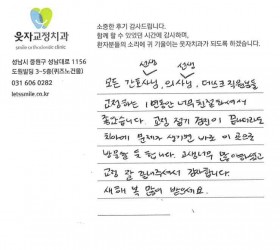 웃자교정치과
smile orthodontic clinic
성남시 중원구 성남대로 1156
도원빌딩 3-5층(위즈노건물)
031 606 0282
letssmile.co.kr
소중한 후기 감사드립니다.
함께 할 수 있었던 시간에 감사하며,
환자분들의 소리에 귀 기울이는 웃자치과가 되도록 하겠습니다.
선생 선생
모든 간호사님, 의사님, 데스크 직원분들
교정하는 1년동안 너무 친절하셔서
좋았습니다. 교정 정기 검진이 끝나더라도
치아에 문제가 생기면 바로 이 곳으로
방문할 것 입니다. 고생너무 많이하셨고
교정 잘 감사합니다.
새해 복 많이 받으세요.